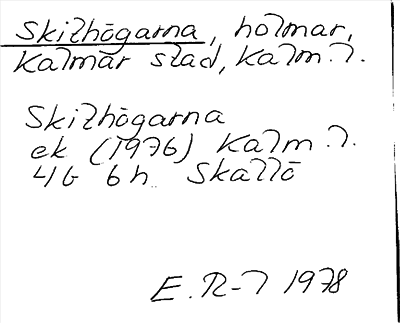 Skilhögarna, holmar,
Kalmar stad, Kalm. l.
Skilhögarna
ek (1976) Kalm. l.
4G 6h Skallö
E. R-l 1978